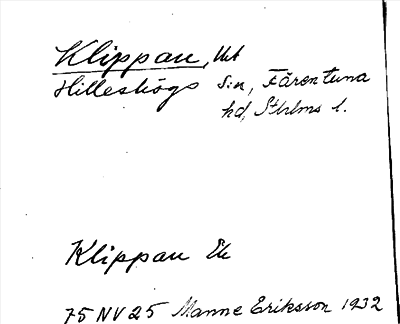 Klippan, Ukt
Hilleshögs s:n, Färentuna
hd, Sthlms l.
Klippan Ek
75 NV 25 Manne Eriksson 1932